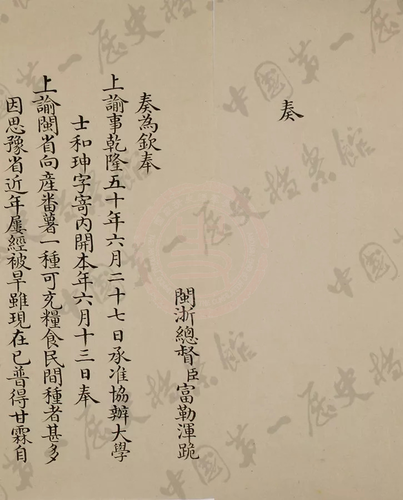 奏
閩浙總督臣富勒渾跪
奏為欽奉
上諭事乾隆五十年六月二十七日承准協辦大學
士和珅字寄內開本年六月十三日奉
上諭閩省向産番薯一種可充糧食民間種者甚多
因思豫省近年屢經被旱雖現在已普得甘霖自
中國第一歷史檔案館